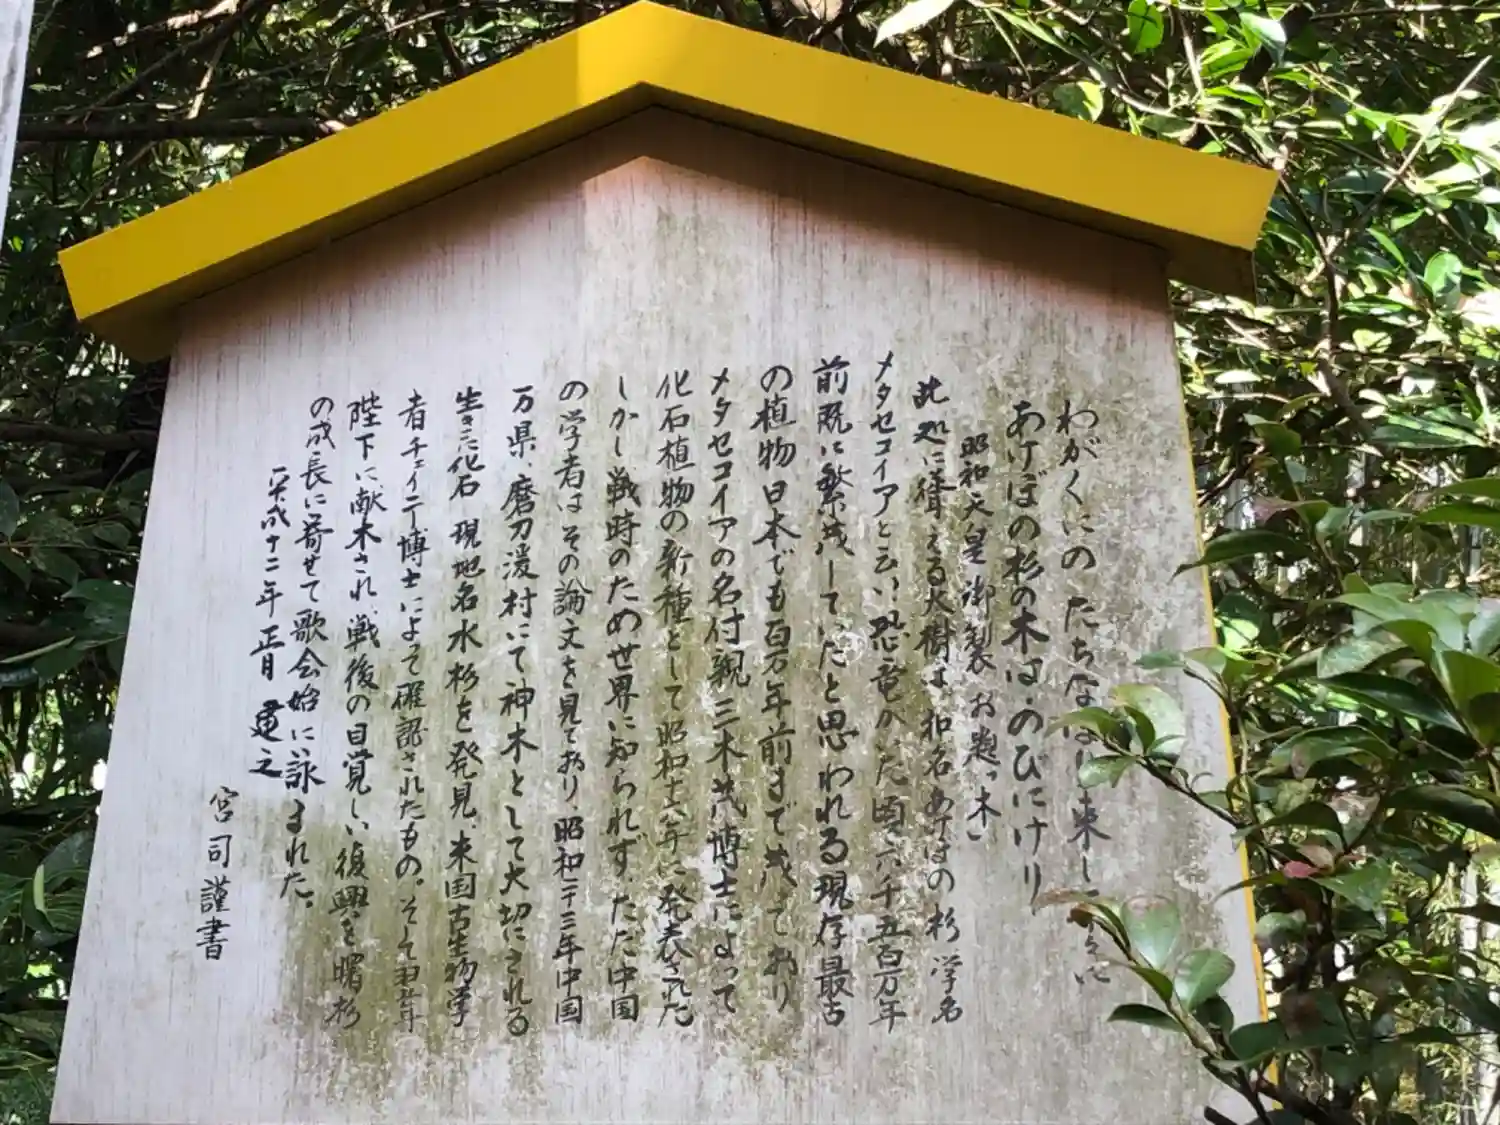 わがくにの たちなほり来し
あけぼの杉の木は のびにけり
昭和天皇御製 お題“木”
此処に聳える大樹は、和名あけぼの杉 学名
メタセコイアと云い 恐竜がいた頃 六千五百万年
前既に繁茂していたと思われる現存最古
の植物 日本でも百万年前まで茂っており
メタセコイアの名付親 三木茂博士によって
化石植物の新種として昭和十六年に発表された
しかし戦時のため世界に知られず、ただ中国
の学者はその論文を見ており、昭和二十三年中国
万県、磨刀渓村にて神木として大切にされる
生きた化石 現地名水杉を発見、米国古生物学
者チェイニー博士によって確認されたもの。そして翌年
陛下に献木され、戦後の目覚しい復興を曙杉
の成長に寄せて歌会始に詠まれた。
平成十二年正月 建之
宮司謹書